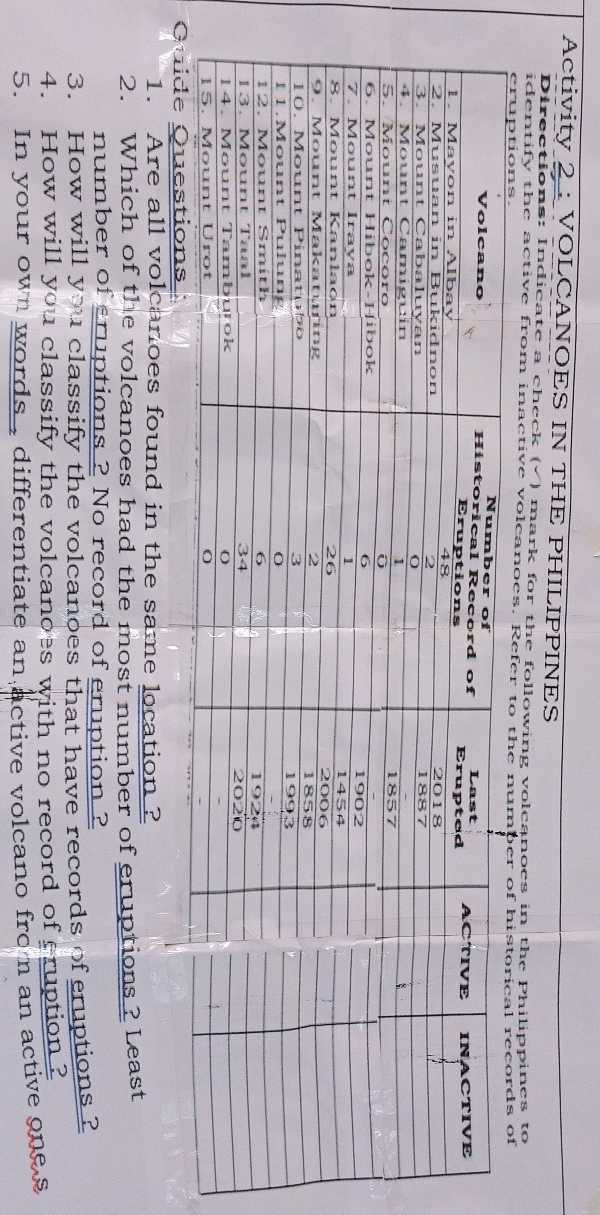 Activity 2 : VOLCANOES IN THE PHILIPPINES
Directions: Indicate a check (✓) mark for the following volcanoes in the Philippines to
identify the active from inactive volcanoes. Refer to the number of historical records of
eruptions.
Volcano Number of Historical Record of Eruptions Last Erupted ACTIVE INACTIVE
1. Mayon in Albay 48 2018
2. Musuan in Bukidnon 2 1887
3. Mount Cabaluyan 0 -
4. Mount Camiguin 1 1857
5. Mount Cocoro 0 -
6. Mount Hibok-Hibok 6 1902
7. Mount Iraya 1 1454
8. Mount Kanlaon 26 2006
9. Mount Makaturing 2 1858
10. Mount Pinatubo 3 1993
11.Mount Pulung 0 -
12. Mount Smith 6 1924
13. Mount Taal 34 2020
14. Mount Tamburok 0 -
15. Mount Urot 0 -
Guide Questions :
1. Are all volcanoes found in the same location ?
2. Which of the volcanoes had the most number of eruptions ? Least
number of eruptions ? No record of eruption ?
3. How will you classify the volcanoes that have records of eruptions ?
4. How will you classify the volcanoes with no record of eruption ?
5. In your own words , differentiate an active volcano from an active one s